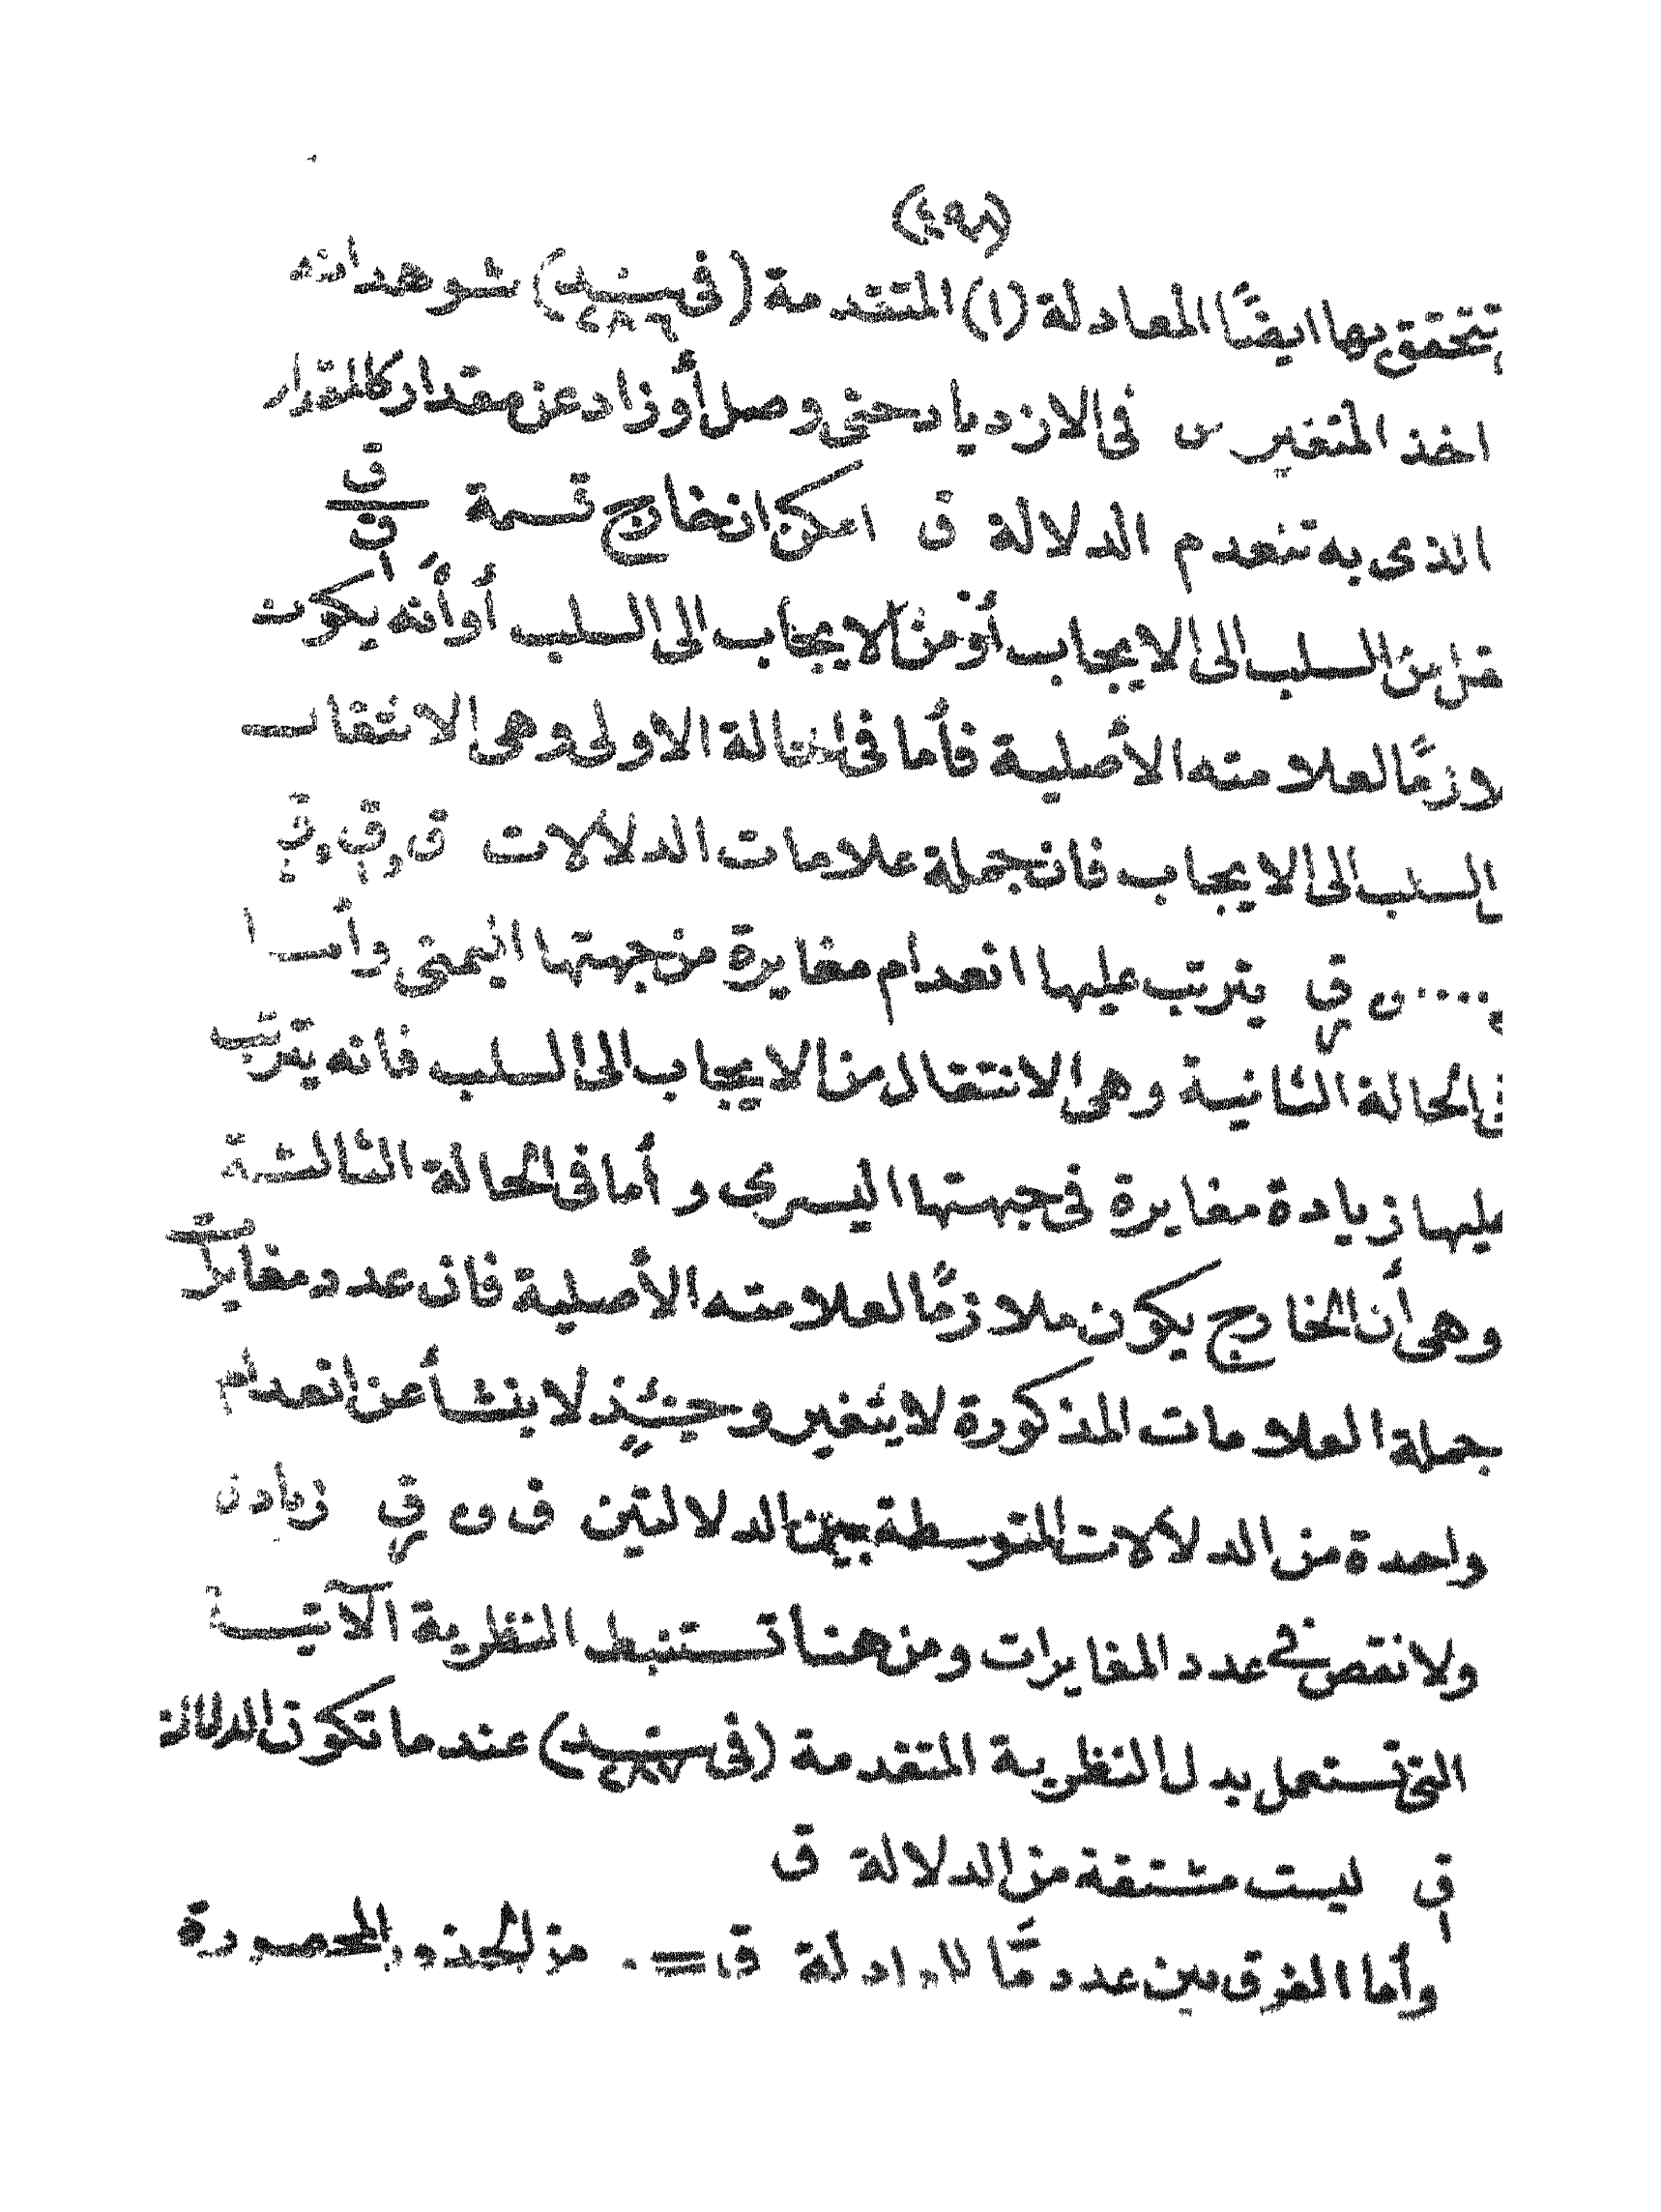 (٤٩٨)
تتحقق بها ايضًا المعادلة (١) المتقدمة (فى سند ٤٨٦) شوهد انه
اخذ المتغير س فى الازدياد حتى وصل أو زاد عن مقدار كالمقدار
الذى به تنعدم الدلالة ق امكن ان خارج قسمة ق/ق
من السلب الى الايجاب أو من الايجاب الى السلب أو أنه يكون
لازمًا لعلامته الأصلية فأما فى الحالة الاولى وهى الانتقال
السلب الى الايجاب فان جملة علامات الدلالات ق و ق و ق
.... و ق يترتب عليها انعدام مغايرة من جهتها اليمنى وأما
فى الحالة الثانية وهى الانتقال من الايجاب الى السلب فانه يترتب
عليها زيادة مغايرة فى جهتها اليسرى و أما فى الحالة الثالثة
وهى أن الخارج يكون ملازمًا لعلامته الأصلية فان عدد مغايرات
جملة العلامات المذكورة لا يتغير وحينئذ لا ينشأ عن انعدام
واحدة من الدلالات المتوسطة بين الدلالتين ق و ق زيادة
ولا نقص فى عدد المغايرات ومن هنا تستنبط النظرية الآتية
التى تستعمل بدل النظرية المتقدمة (فى سند ٤٨٧) عند ما تكون الدلالة
ق ليست مشتقة من الدلالة ق
وأما الفرق بين عدد مَّا للمعادلة ق = ٠ من الجذور المحصورة